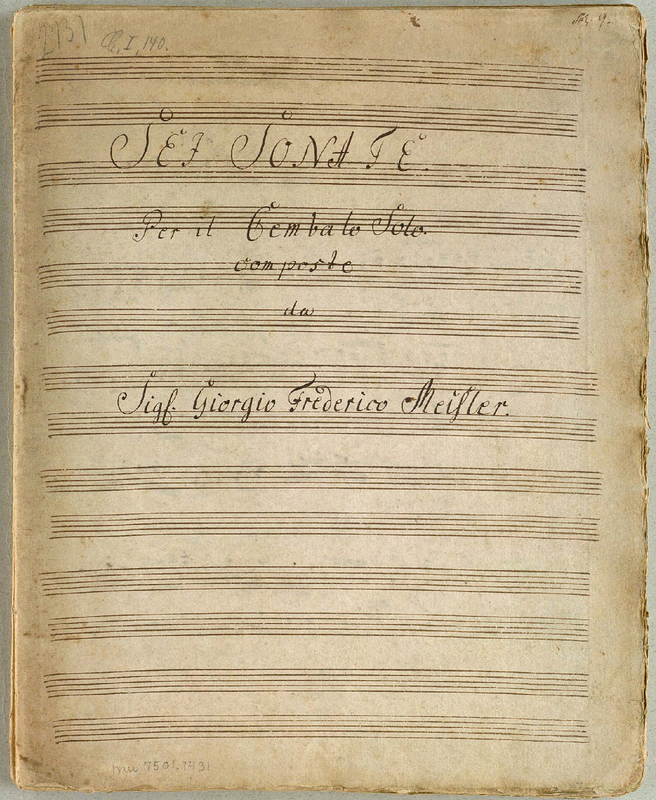 2131
Ch. I, 140.
No. 9.
SEI SONATE.
Per il Cembalo Solo.
composte
da
Sigr. Giorgio Frederico Meisler.
mu 7501.1431